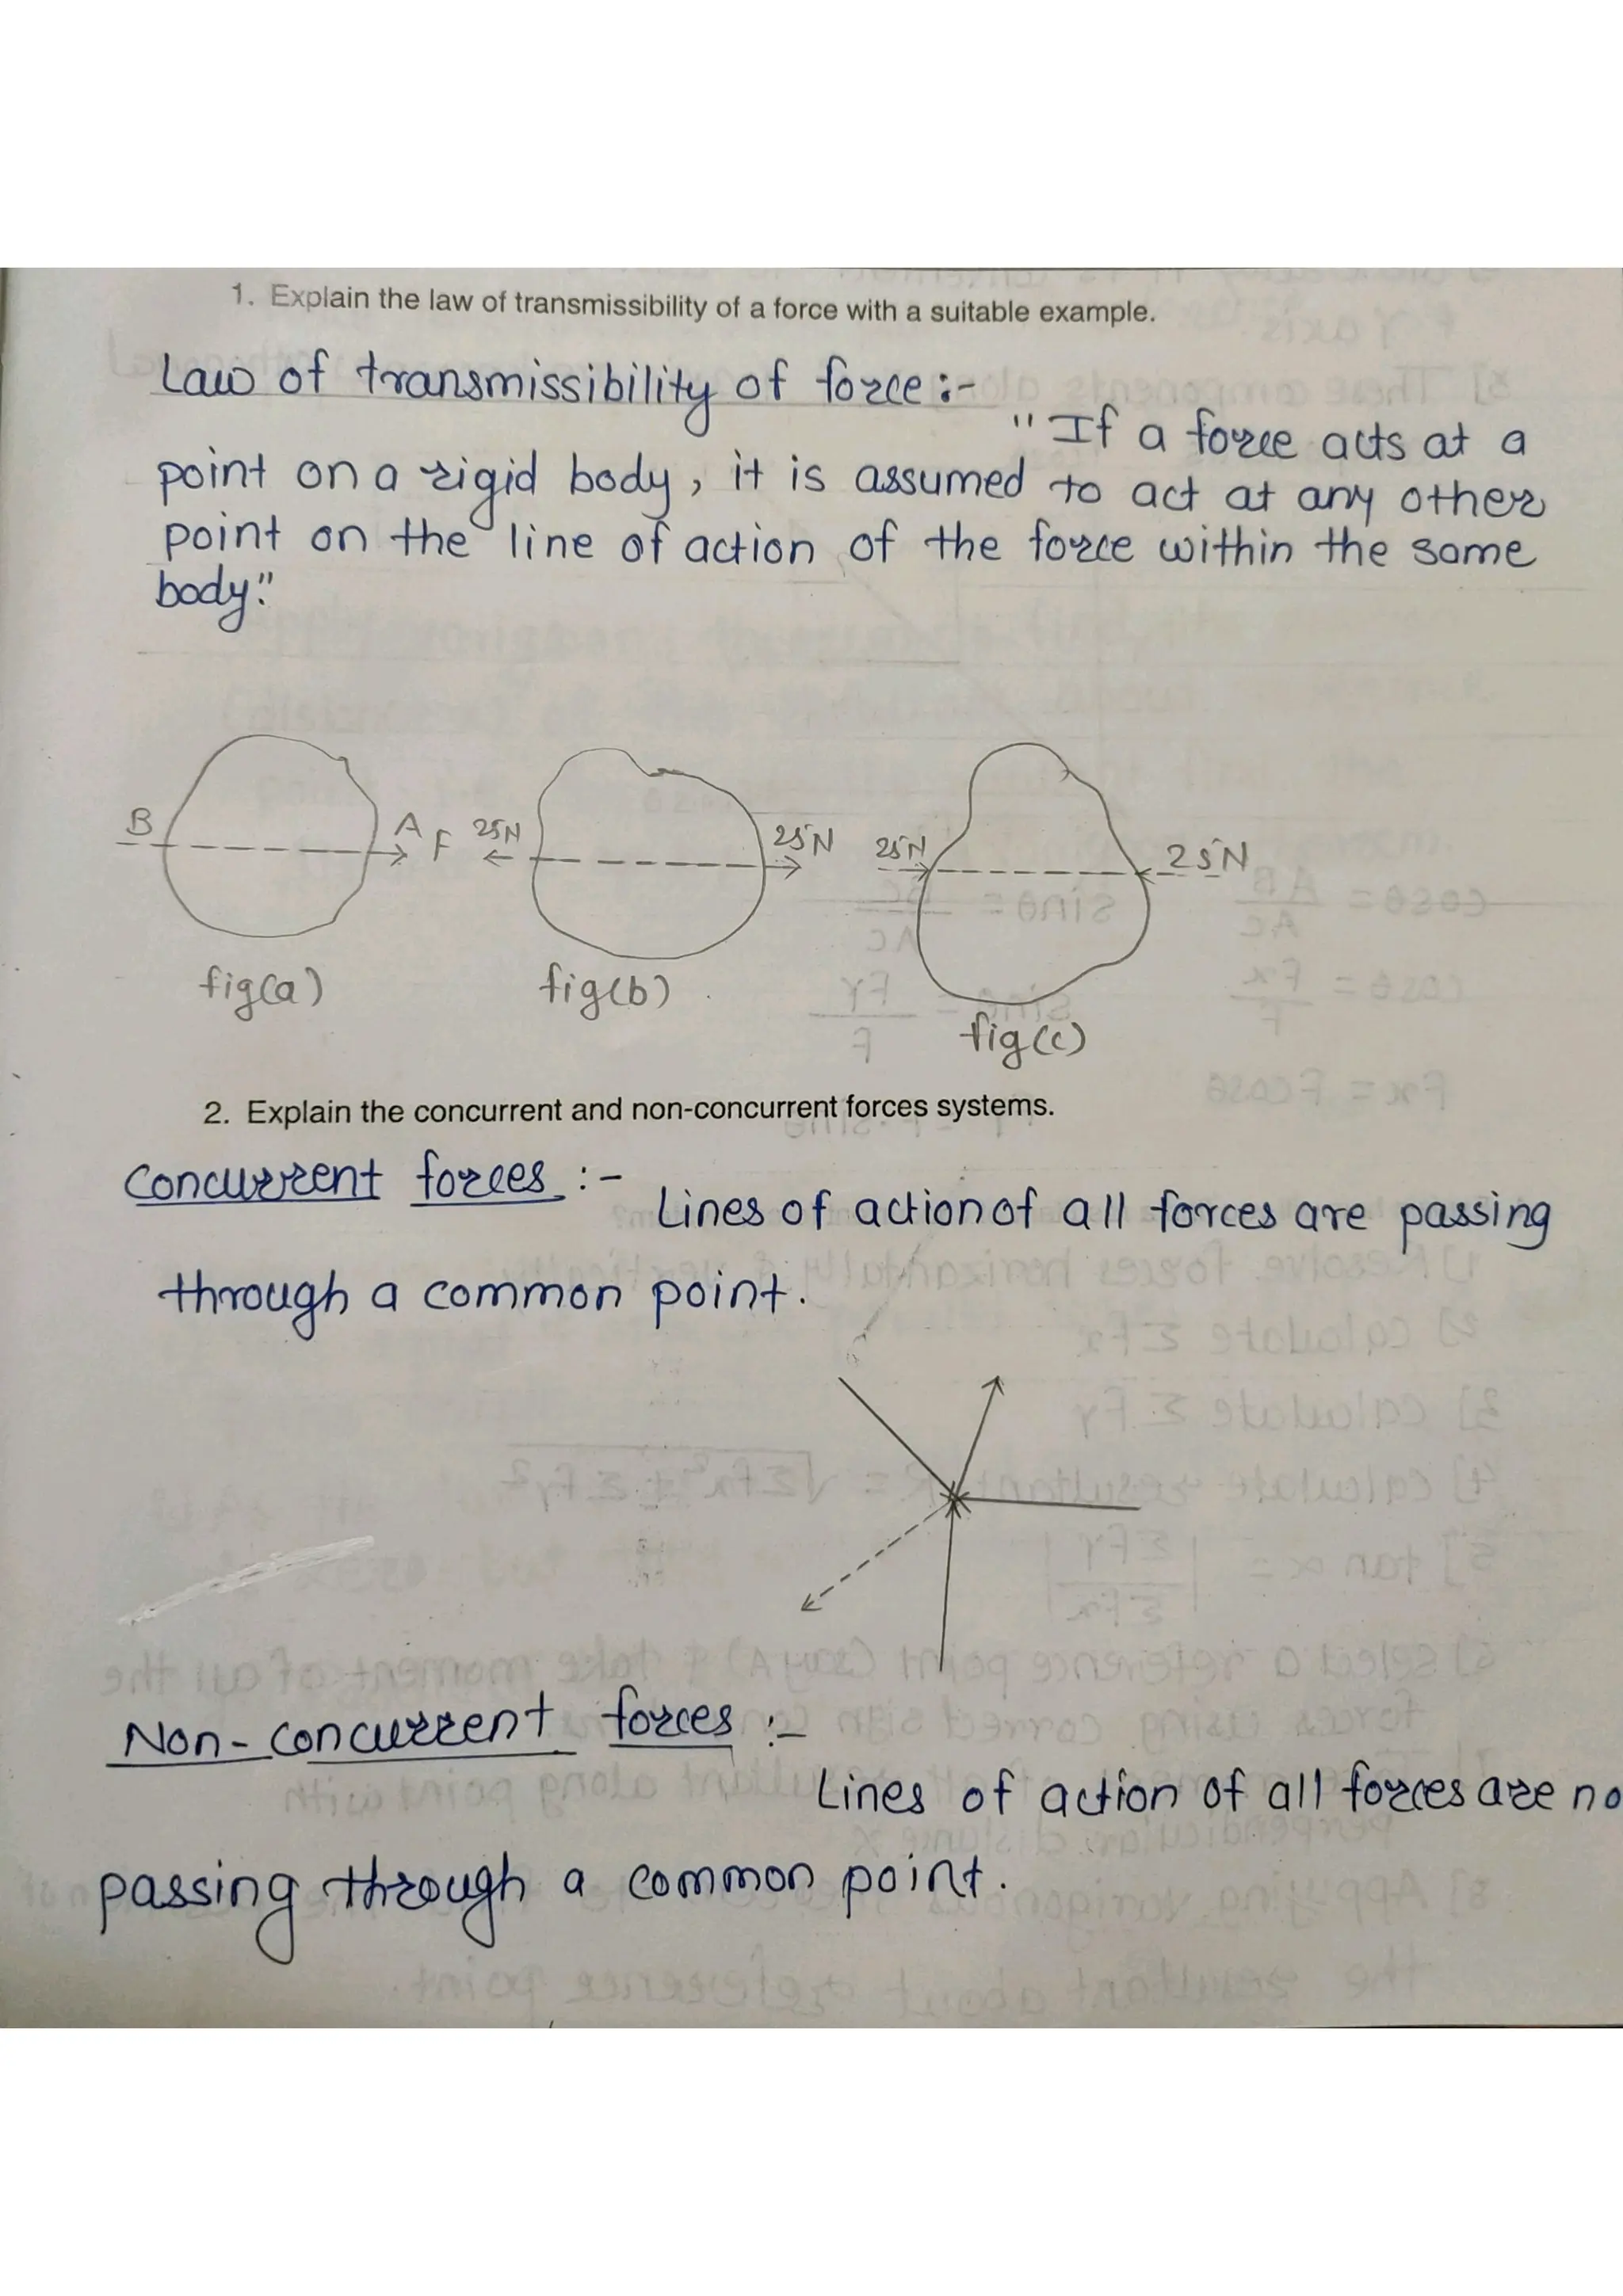 1. Explain the law of transmissibility of a force with a suitable example.
Law of transmissibility of force :-
"If a force acts at a
point on a rigid body, it is assumed to act at any other
point on the line of action of the force within the same
body."
B A F 25N 25N 25N 25N
fig(a) fig(b) fig(c)
2. Explain the concurrent and non-concurrent forces systems.
Concurrent forces :-
Lines of action of all forces are passing
through a common point.
Non-concurrent forces :-
Lines of action of all forces are no
passing through a common point.